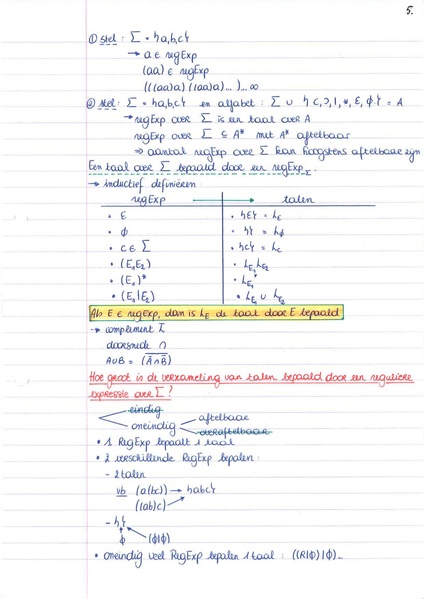 5.
① stel : Σ = {a,b,c}
→ a ∈ regExp
(aa) ∈ regExp
(((aa)a) ((aa)a)...)...∞
② stel : Σ = {a,b,c} en alfabet : Σ ∪ { (,),|,*,ε,ϕ } = A
→ regExp over Σ is een taal over A
regExp over Σ ⊆ A* met A* aftelbaar
⇒ aantal regExp over Σ kan hoogstens aftelbaar zijn
Een taal over Σ bepaald door een regExp Σ.
→ inductief definiëren :
regExp → talen
• ε • {ε} = Lε
• ϕ • { } = Lϕ
• c ∈ Σ • {c} = Lc
• (E₁E₂) • L_E₁ L_E₂
• (E₁)* • L_E₁*
• (E₁|E₂) • L_E₁ ∪ L_E₂
Als E ∈ regExp, dan is L_E de taal door E bepaald
→ complement L̅
doorsnede ∩
A∪B = (A̅∩B̅)
Hoe groot is de verzameling van talen bepaald door een reguliere
expressie over Σ?
eindig
oneindig aftelbaar
overaftelbaar
• 1 RegExp bepaalt 1 taal
• 2 verschillende RegExp bepalen :
- 2 talen
vb (a(bc)) → {abc}
((ab)c)
- { }
ϕ (ϕ|ϕ)
• oneindig veel RegExp bepalen 1 taal : ((R|ϕ)|ϕ)...